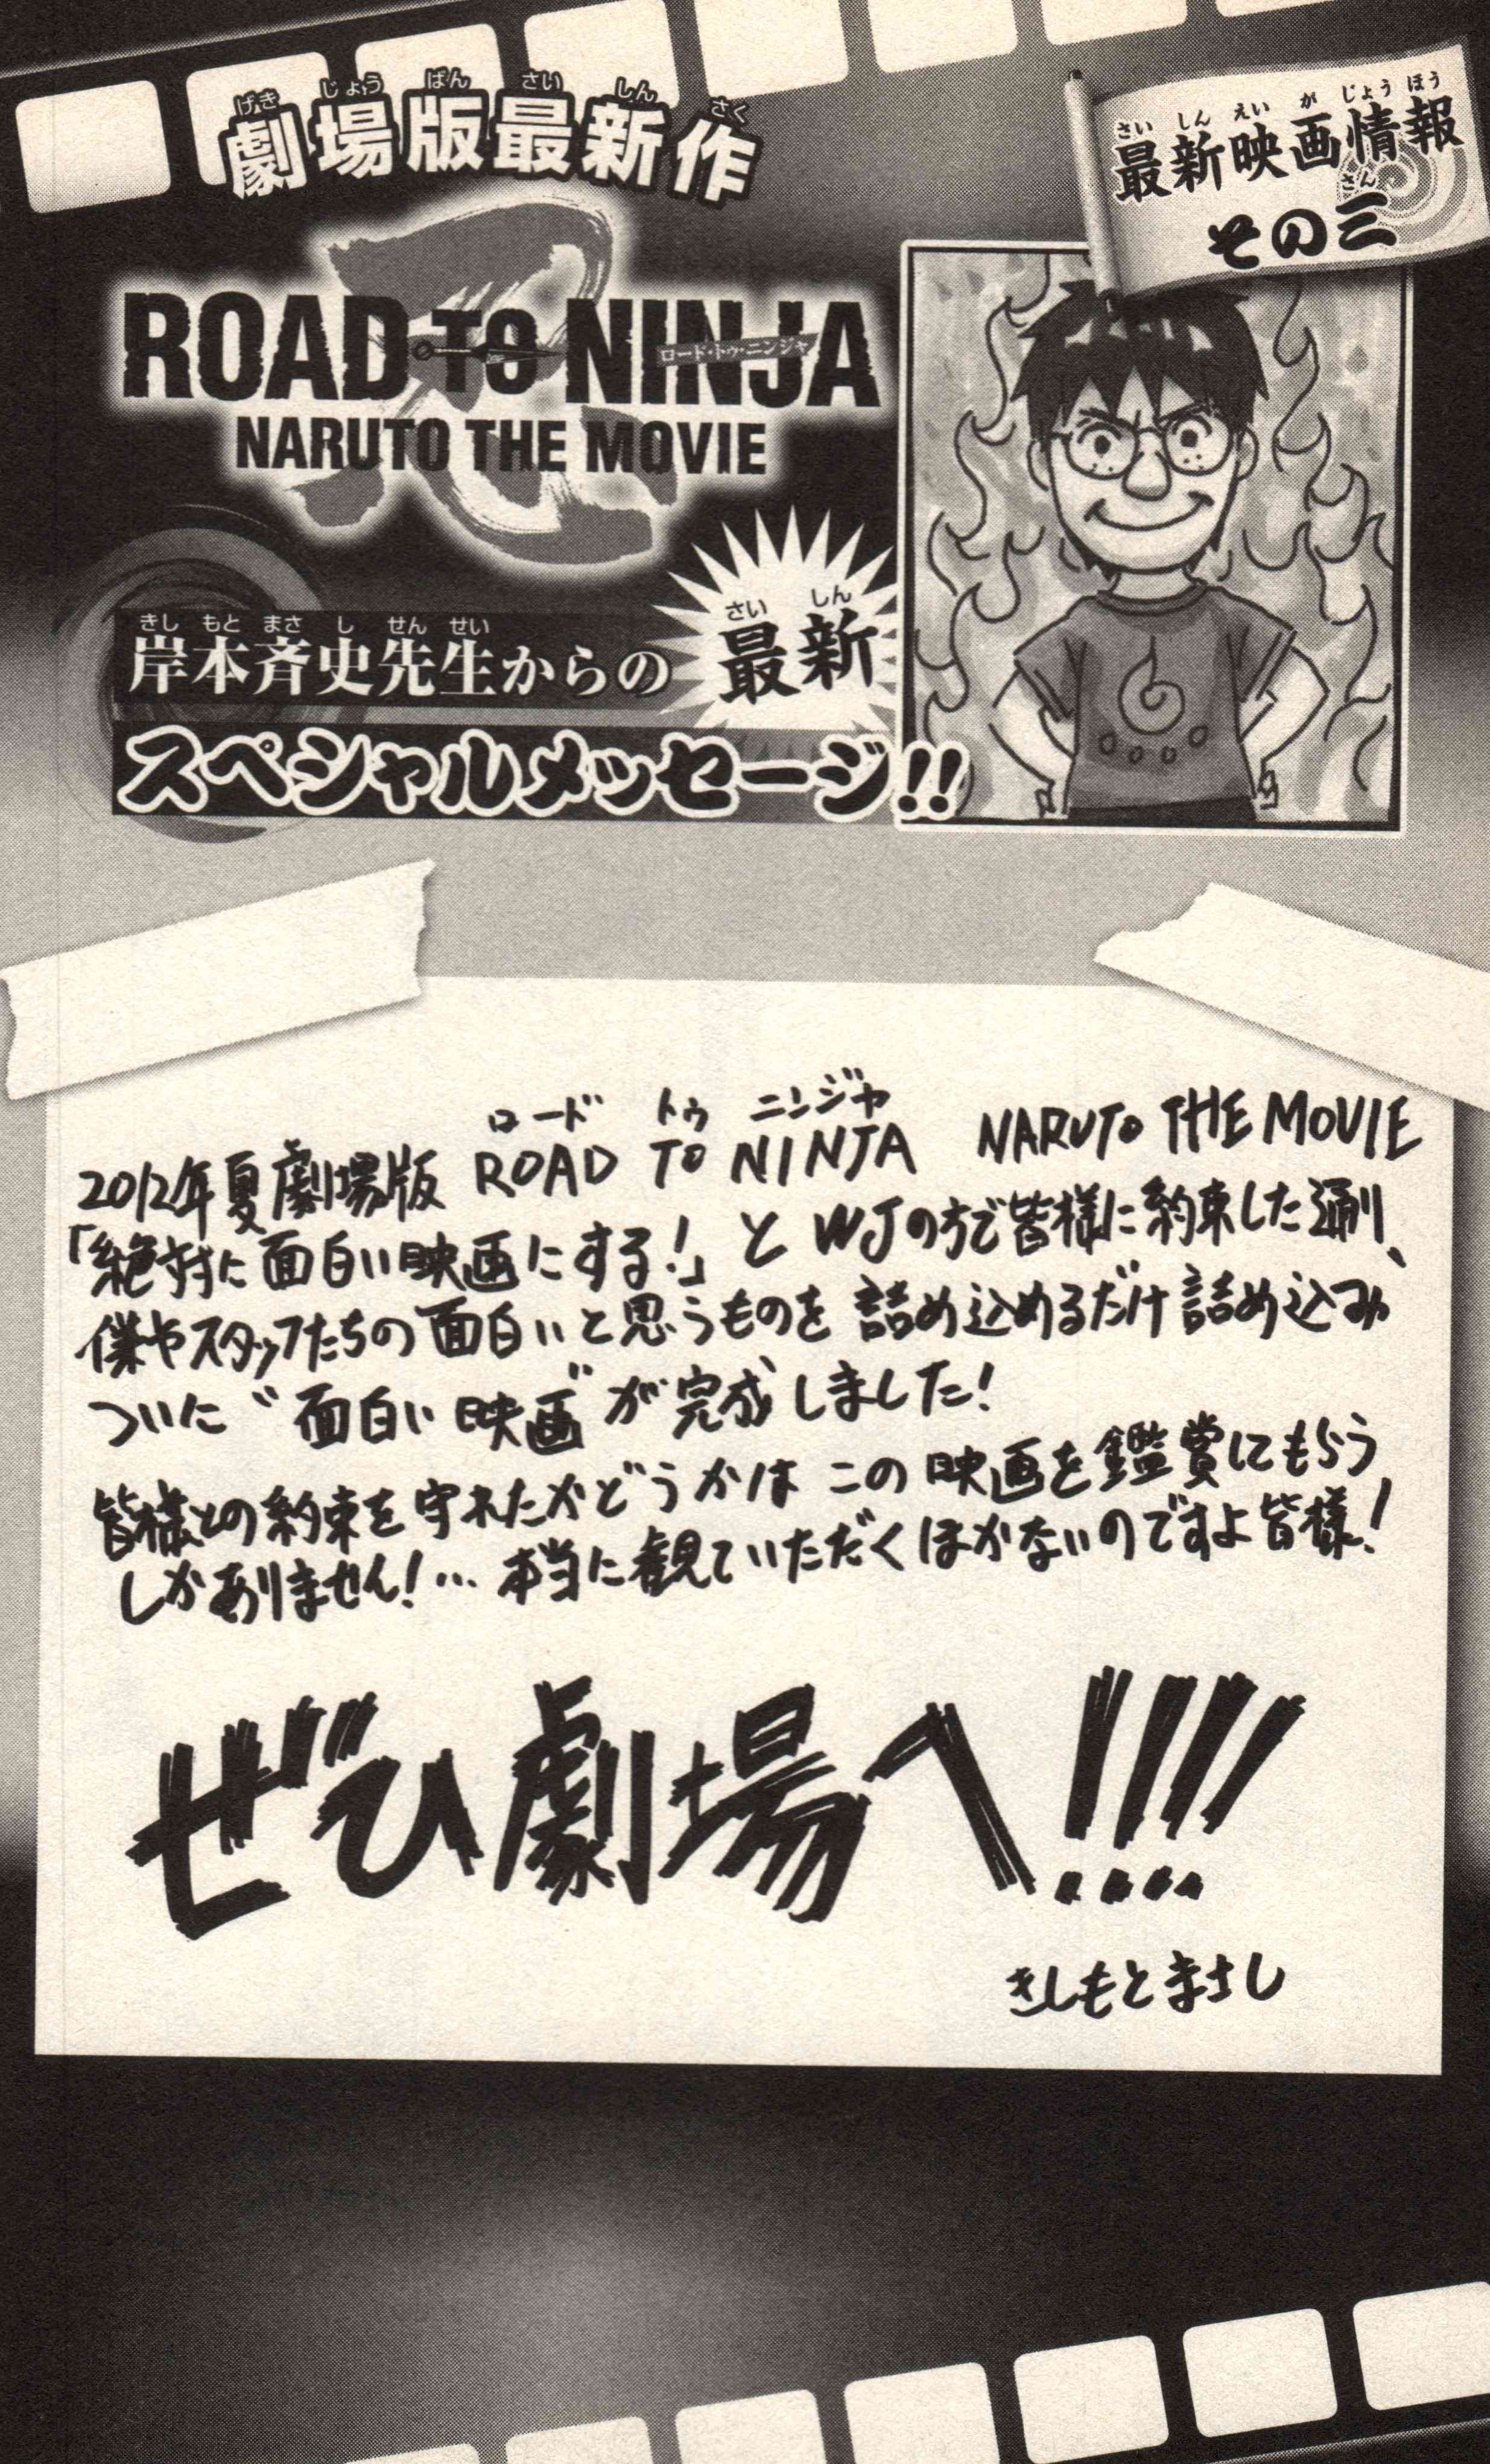 劇場版最新作
げき じょう ばん さい しん さく
最新映画情報
さい しん えい が じょう ほう
その三
さん
ROAD TO NINJA
ロード・トゥ・ニンジャ
NARUTO THE MOVIE
忍
岸本斉史先生からの
きし もと まさ し せん せい
最新
さい しん
スペシャルメッセージ!!
ロード トゥ ニンジャ
2012年夏劇場版 ROAD TO NINJA NARUTO THE MOVIE
「絶対に面白い映画にする!」と WJの方で皆様に約束した通り、
僕やスタッフたちの面白いと思うものを詰め込めるだけ詰め込み
ついに“面白い映画”が完成しました!
皆様との約束を守れたかどうかは この映画を鑑賞にもらう
しかありません!… 本当に観ていただくほかないのですよ皆様!
ぜひ劇場へ!!!!
きしもとまさし